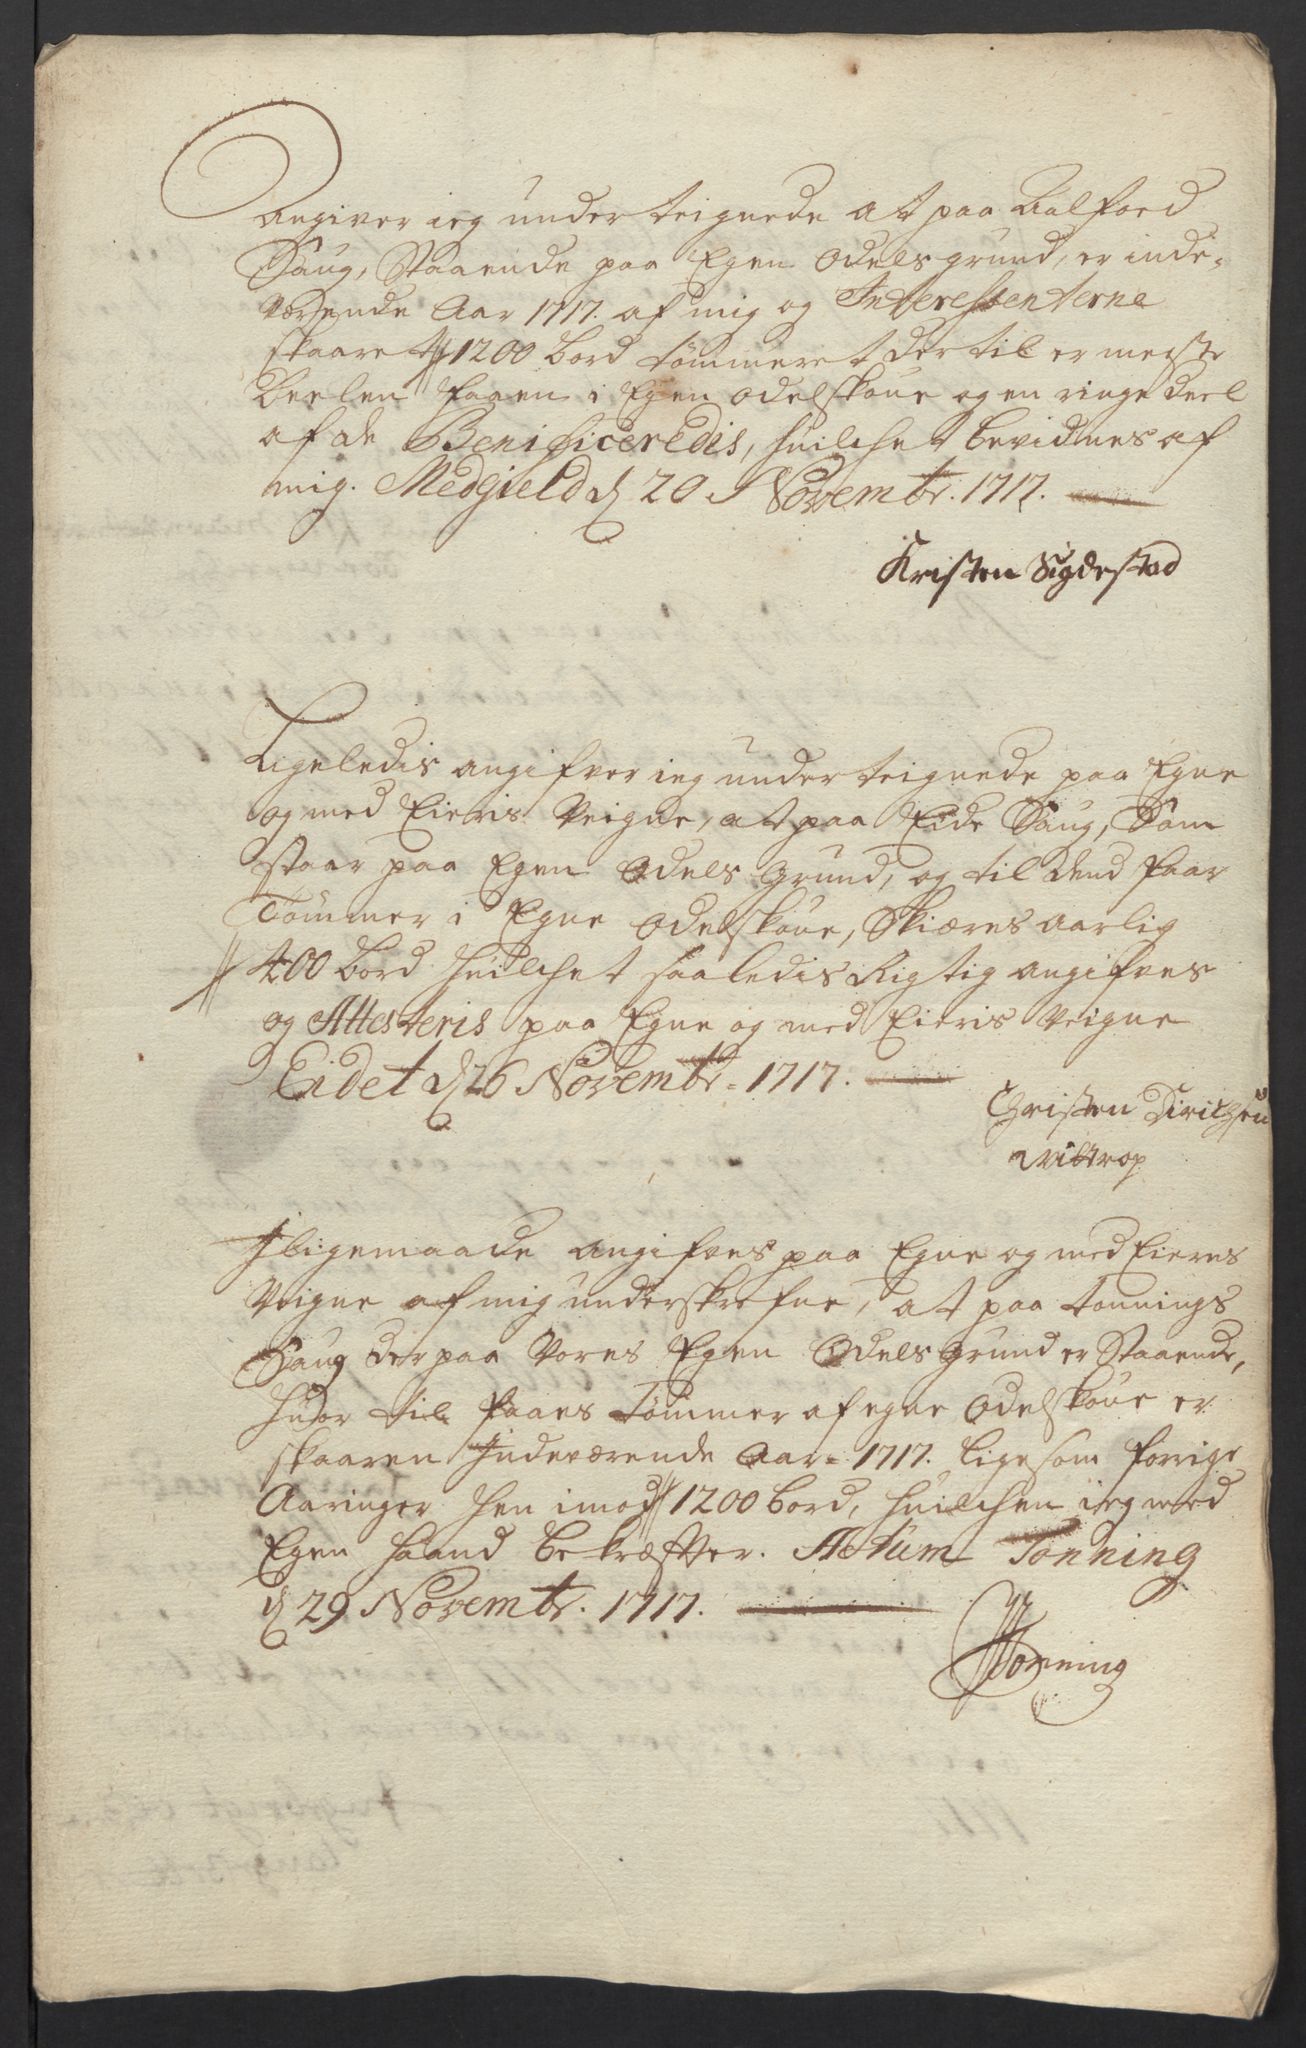 Angiver ieg under teignede at paa Aalfoed
Saug, Staaende paa Egen Odels grund, er inde-
værende Aar 1717. af mig og Interessenterne
skaaret 1200 bord tømmeret der til er meeste
deelen faaen i Egen Odelskoue og en ringe deel
af de Benificeredis, huilchet bevidnes af
mig. Medgield d 20 Novembr. 1717.
Kristen Sigdestad
Ligeledis angifver ieg under teignede paa Egne
og med Eieris Veigne, at paa Eide Saug, Som
staar paa Egen Odels Grund, og til dend faar
Tømmer i Egne Odelskoue, Skiæres aarlig
400 bord huilchet saaledis Rigtig angifves
og Attesteris paa Egne og med Eieris Veigne
Eidet d 26 Novembr. 1717.
Christen Dirichsen
Wittrop
J ligemaade angifves paa Egne og med Eieres
Veigne af mig underskrefne, at paa tonnings
Saug der paa Vores Egen Odels Grund er Staaende,
huor til faaes Tømmer af egne Odelskoue er
skaaren Jndeværende Aar 1717. ligesom forrige
Aaringer hen imod 1200 bord, huilchen ieg med
Egen haand bekræfter. Actum Tonning
d 29 Novembr. 1717.
Tonning